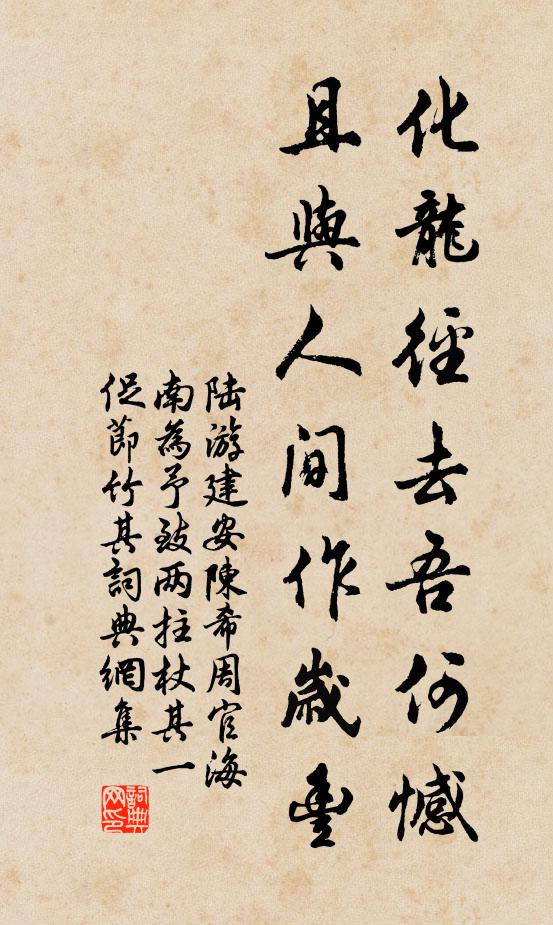 化龍徑去吾何憾
且與人间作歲豐
陆游建安陳希周官海
南為予致两拄杖其一
促节竹其詞典網集
詞典網印